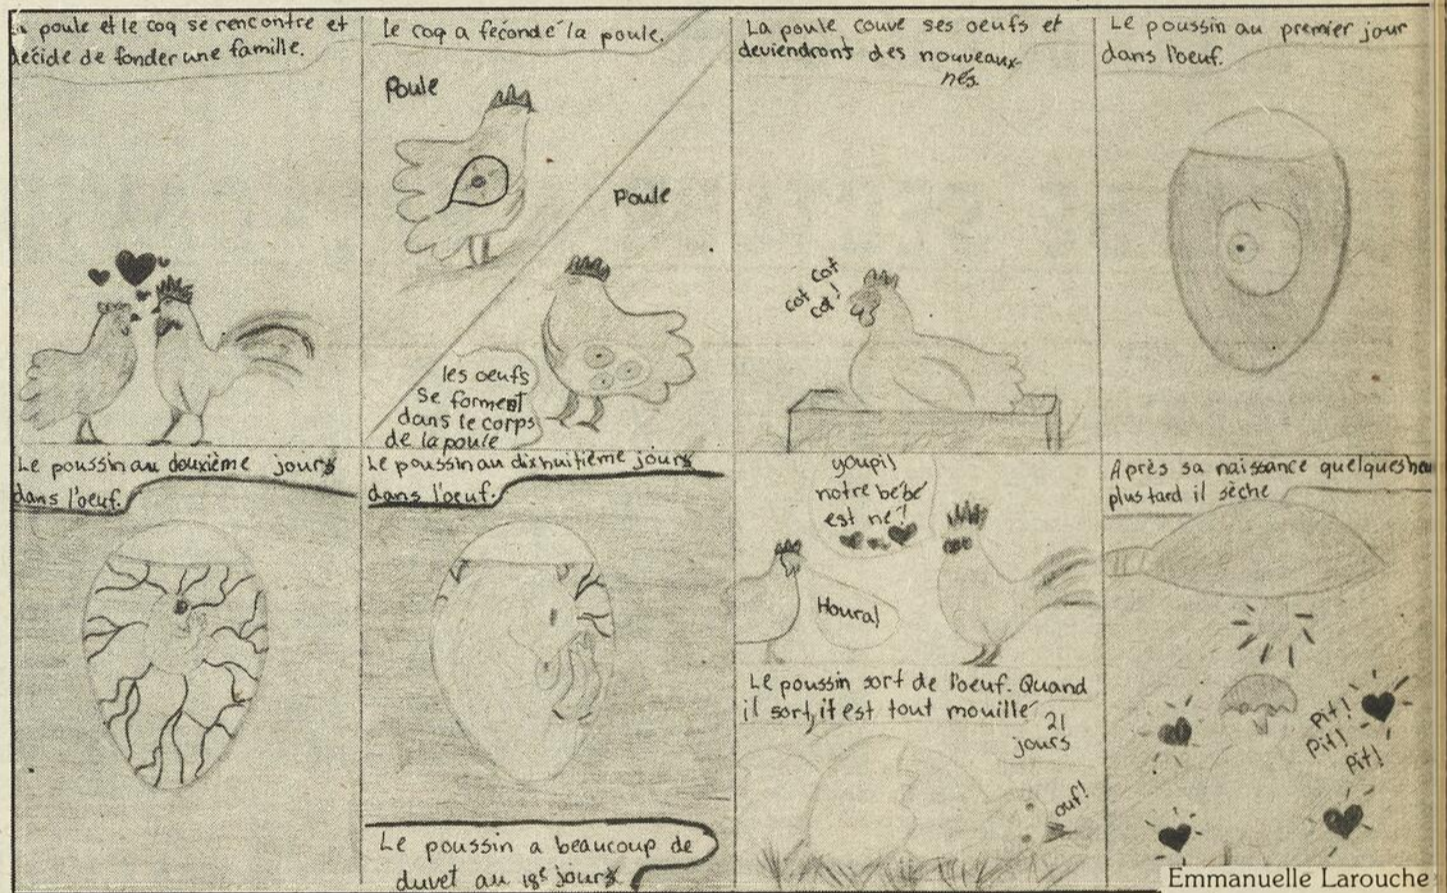 poule et le coq se rencontre et
décide de fonder une famille.
Le coq a fécondé la poule.
Poule
Poule
les oeufs
se forment
dans le corps
de la poule
La poule couve ses oeufs et
deviendront des nouveaux-
nés.
cot cot
cot cot!
Le poussin au premier jour
dans l'oeuf.
Le poussin au douxième jours
dans l'oeuf.
Le poussin au dixhuitième jours
dans l'oeuf.
Le poussin a beaucoup de
duvet au 18e jours
youpi!
notre bébé
est né!
Houra!
Le poussin sort de l'oeuf. Quand
il sort, it est tout mouillé
21
jours
ouf!
Après sa naissance quelques
plus tard il sèche
Pit!
Pit!
Pit!
Emmanuelle Larouche